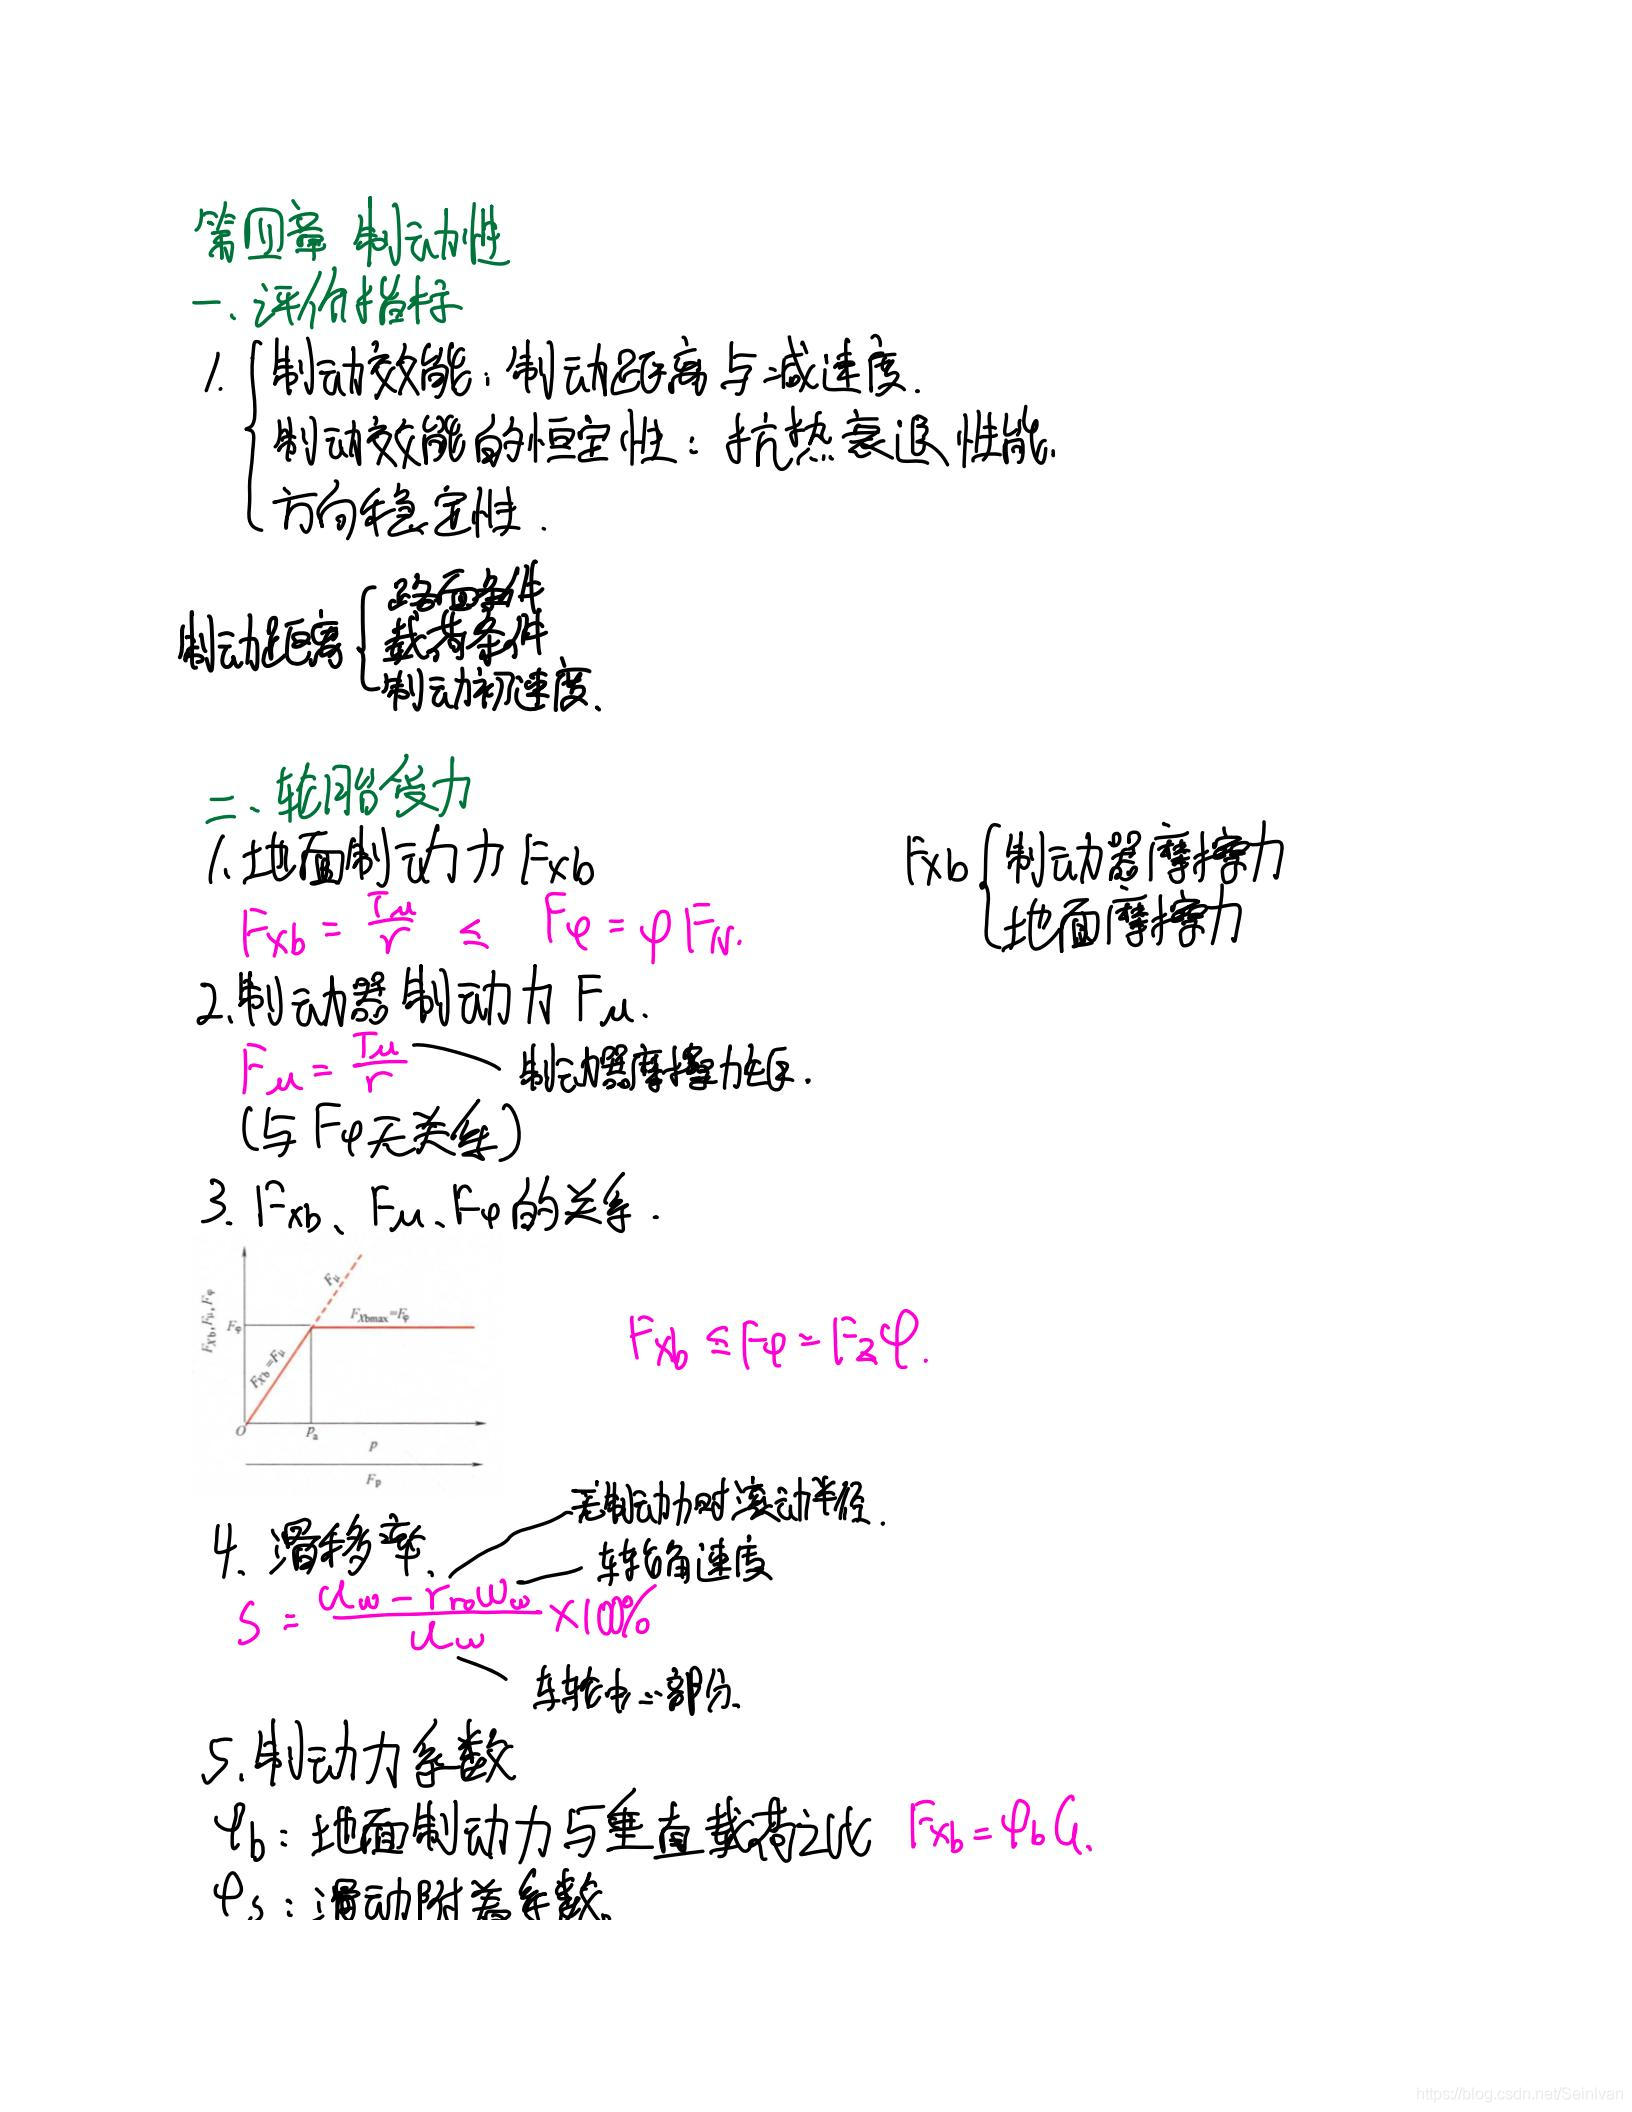 第四章 制动性
一、评价指标
1. 制动效能：制动距离与减速度.
制动效能的恒定性：抗热衰退性能.
方向稳定性.
制动距离
路面条件
载荷条件
制动初速度.
二、轮胎受力
1. 地面制动力 Fxb
Fxb = Tμ/r ≤ Fφ = φFN.
Fxb
制动器摩擦力
地面摩擦力
2. 制动器制动力 Fμ.
Fμ = Tμ/r
制动器摩擦力矩.
(与Fφ无关系)
3. Fxb、Fμ、Fφ的关系.
FXb, Fμ, Fφ
Fμ
FXbmax=Fφ
Fφ
FXb=Fμ
O
pa
p
Fp
Fxb ≤ Fφ = Fzφ.
无制动力时滚动半径.
4. 滑移率、
车轮角速度
S = (uw − rr0ωw)/uw ×100%
车轮中心部分.
5. 制动力系数
φb：地面制动力与垂直载荷之比 Fxb = φbG.
φs：滑动附着系数.
https://blog.csdn.net/SeinIvan